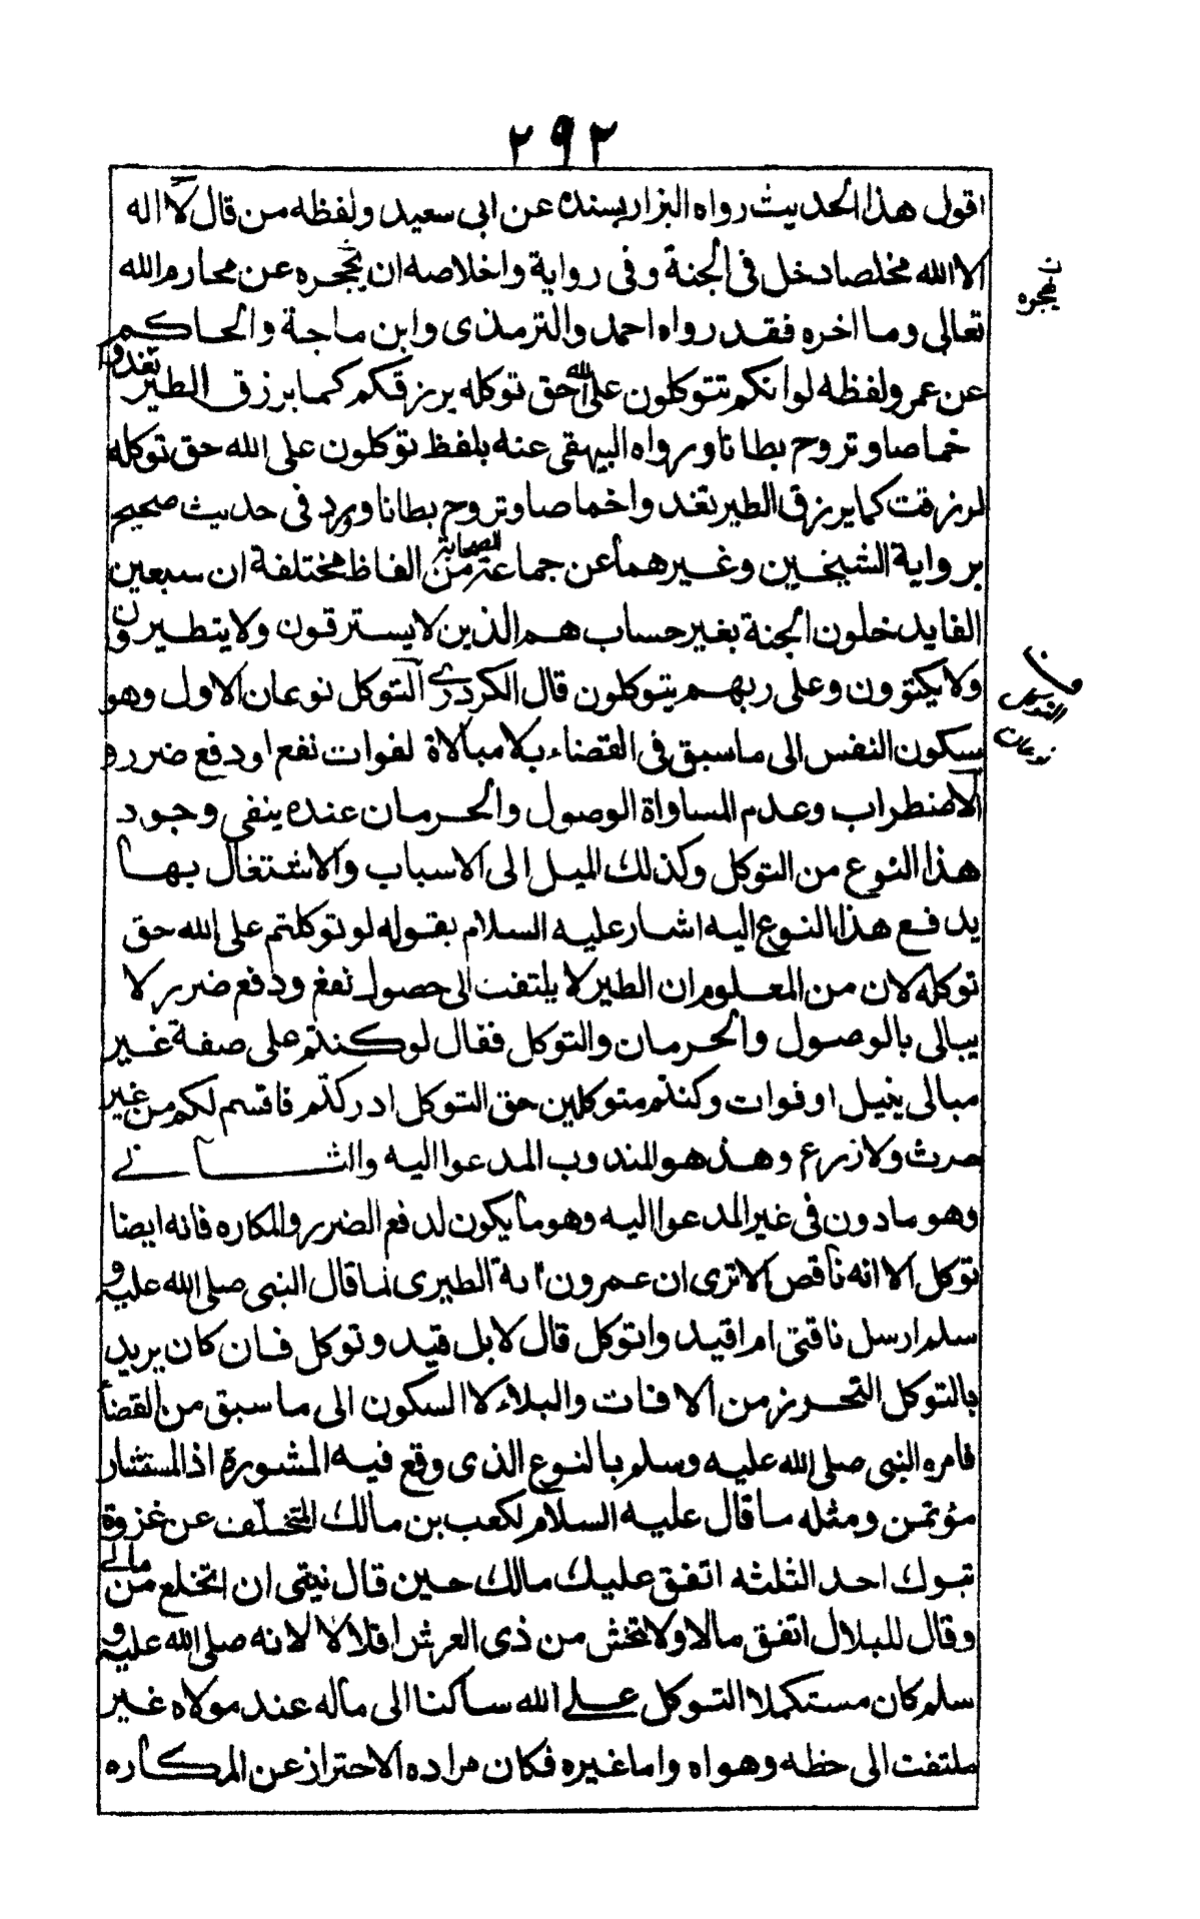 ٢٩٢
اقول هذا الحديث رواه البزار بسنده عن ابى سعيد ولفظه من قال لا اله
الا الله مخلصا دخل فى الجنة وفى رواية واخلاصه ان يحجره عن محارم الله
تهجره
تعالى وما اخره فقد رواه احمد والترمذى وابن ماجة والحاكم
عن عمر ولفظه لو انكم تتوكلون على الله حق توكله يرزقكم كما يرزق الطير تغدوا
خماصا وتروح بطانا ورواه البيهقى عنه بلفظ توكلون على الله حق توكله
لرزقت كما يرزق الطير تغدوا خماصا وتروح بطانا وورد فى حديث صحيح
برواية الشيخين وغيرهما عن جماعة من الصحابة الفاظ مختلفة ان سبعين
الفا يدخلون الجنة بغير حساب هم الذين لا يسترقون ولا يتطيرون
ولا يكتوون وعلى ربهم يتوكلون قال الكردرى التوكل نوعان الاول وهو
نوعان
سكون النفس الى ما سبق فى القضاء بلا مبالاة لفوات نفع او دفع ضرر و
الاضطراب وعدم المساواة الوصول والحرمان عنده ينفى وجود
هذا النوع من التوكل وكذلك الميل الى الاسباب والاشتغال بها
يدفع هذا النوع اليه اشار عليه السلام بقوله لو توكلتم على الله حق
توكله لان من المعلوم ان الطير لا يلتفت الى حصول نفع ودفع ضرر لا
يبالى بالوصول والحرمان والتوكل فقال لو كنتم على صفة غير
مبالى بنيل او فوات وكنتم متوكلين حق التوكل ادركتم فاقسم لكم من غير
صرث ولا زرع وهذ هو المندوب المدعوا اليه والثانى
وهو مادون فى غير المدعوا اليه وهو ما يكون لدفع الضرر والمكاره فانه ايضا
توكل الا انه ناقص الا ترى ان عمرون الطيرى لما قال النبى صلى الله عليه و
سلم ارسل ناقتى ام اقيد واتوكل قال لا بل قيد وتوكل فان كان يريد
بالتوكل التحرز من الافات والبلاء لا السكون الى ما سبق من القضا
فامره النبى صلى الله عليه وسلم بالنوع الذى وقع فيه المشورة اذ المستشار
مؤتمن ومثله ما قال عليه السلام لكعب بن مالك المتخلف عن غزوة
تبوك احد الثلثه اتفق عليك مالك حين قال نيتى ان اتخلع من مالى
وقال للبلال اتفق مالا ولا تخش من ذى العرش اقلالا لانه صلى الله عليه و
سلم كان مستكملا التوكل على الله ساكنا الى ماله عند مولاه غير
ملتفت الى حظه وهواه واما غيره فكان مراده الاحتراز عن المكاره